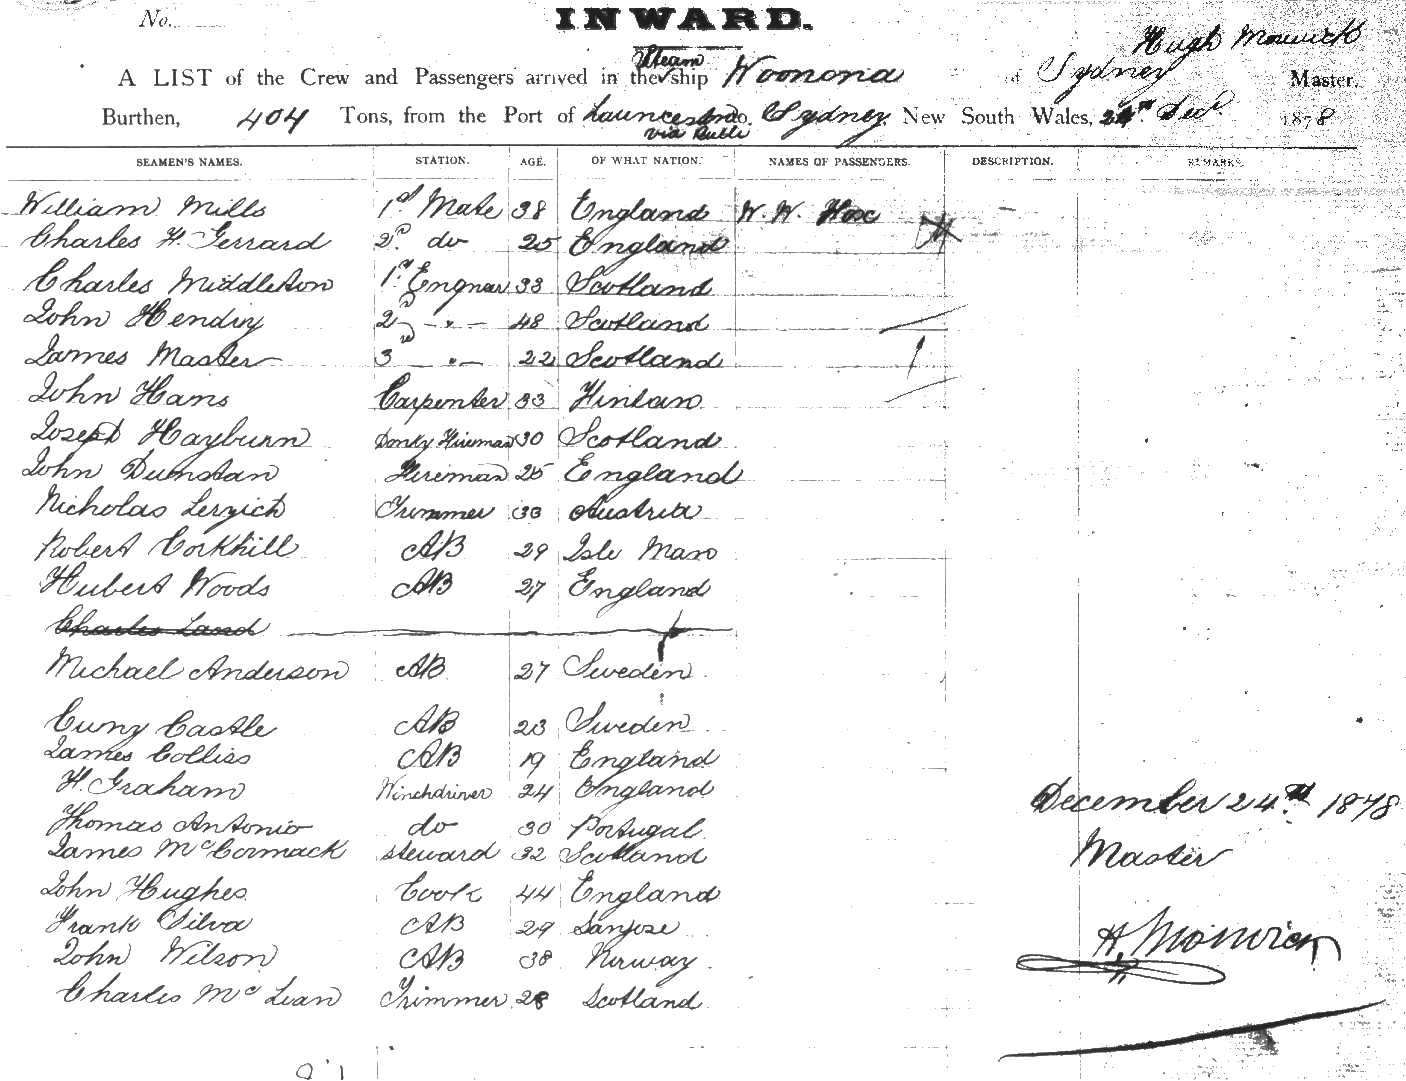 No.
INWARD.
Hugh Monwick
A LIST of the Crew and Passengers arrived in the Steam ship Woonona of Sydney Master.
Burthen, 404 Tons, from the Port of Launceston to Sydney, New South Wales, 24th Decr 1878
via Bulli
SEAMEN'S NAMES. STATION. AGE. OF WHAT NATION. NAMES OF PASSENGERS. DESCRIPTION. REMARKS.
William Mills 1st Mate 38 England W. W. Hox
Charles H. Gerrard 2d do 25 England
Charles Middleton 1st Engnear 33 Scotland
John Hendry 2d - " - 48 Scotland
James Master 3rd " - 22 Scotland
John Hans Carpenter 33 Finlan
Joseph Hayburn Donky Fireman 30 Scotland
John Dunstan Fireman 25 England
Nicholas Lerzich Trimmer 33 Austria
Robert Corkhill AB 29 Isle Man
Hubert Woods AB 27 England
Charles Land
Michael Anderson AB 27 Sweden
Cuny Castle AB 23 Sweden
James Colliss AB 19 England
H. Graham Winchdriver 24 England
December 24th 1878
Thomas Antonio do 30 Portugal
James McCormack steward 32 Scotland
Master
John Hughes Cook 44 England
Frank Silva AB 29 Sanjose
H. Monwick
John Wilson AB 38 Norway
Charles McLean Trimmer 28 Scotland